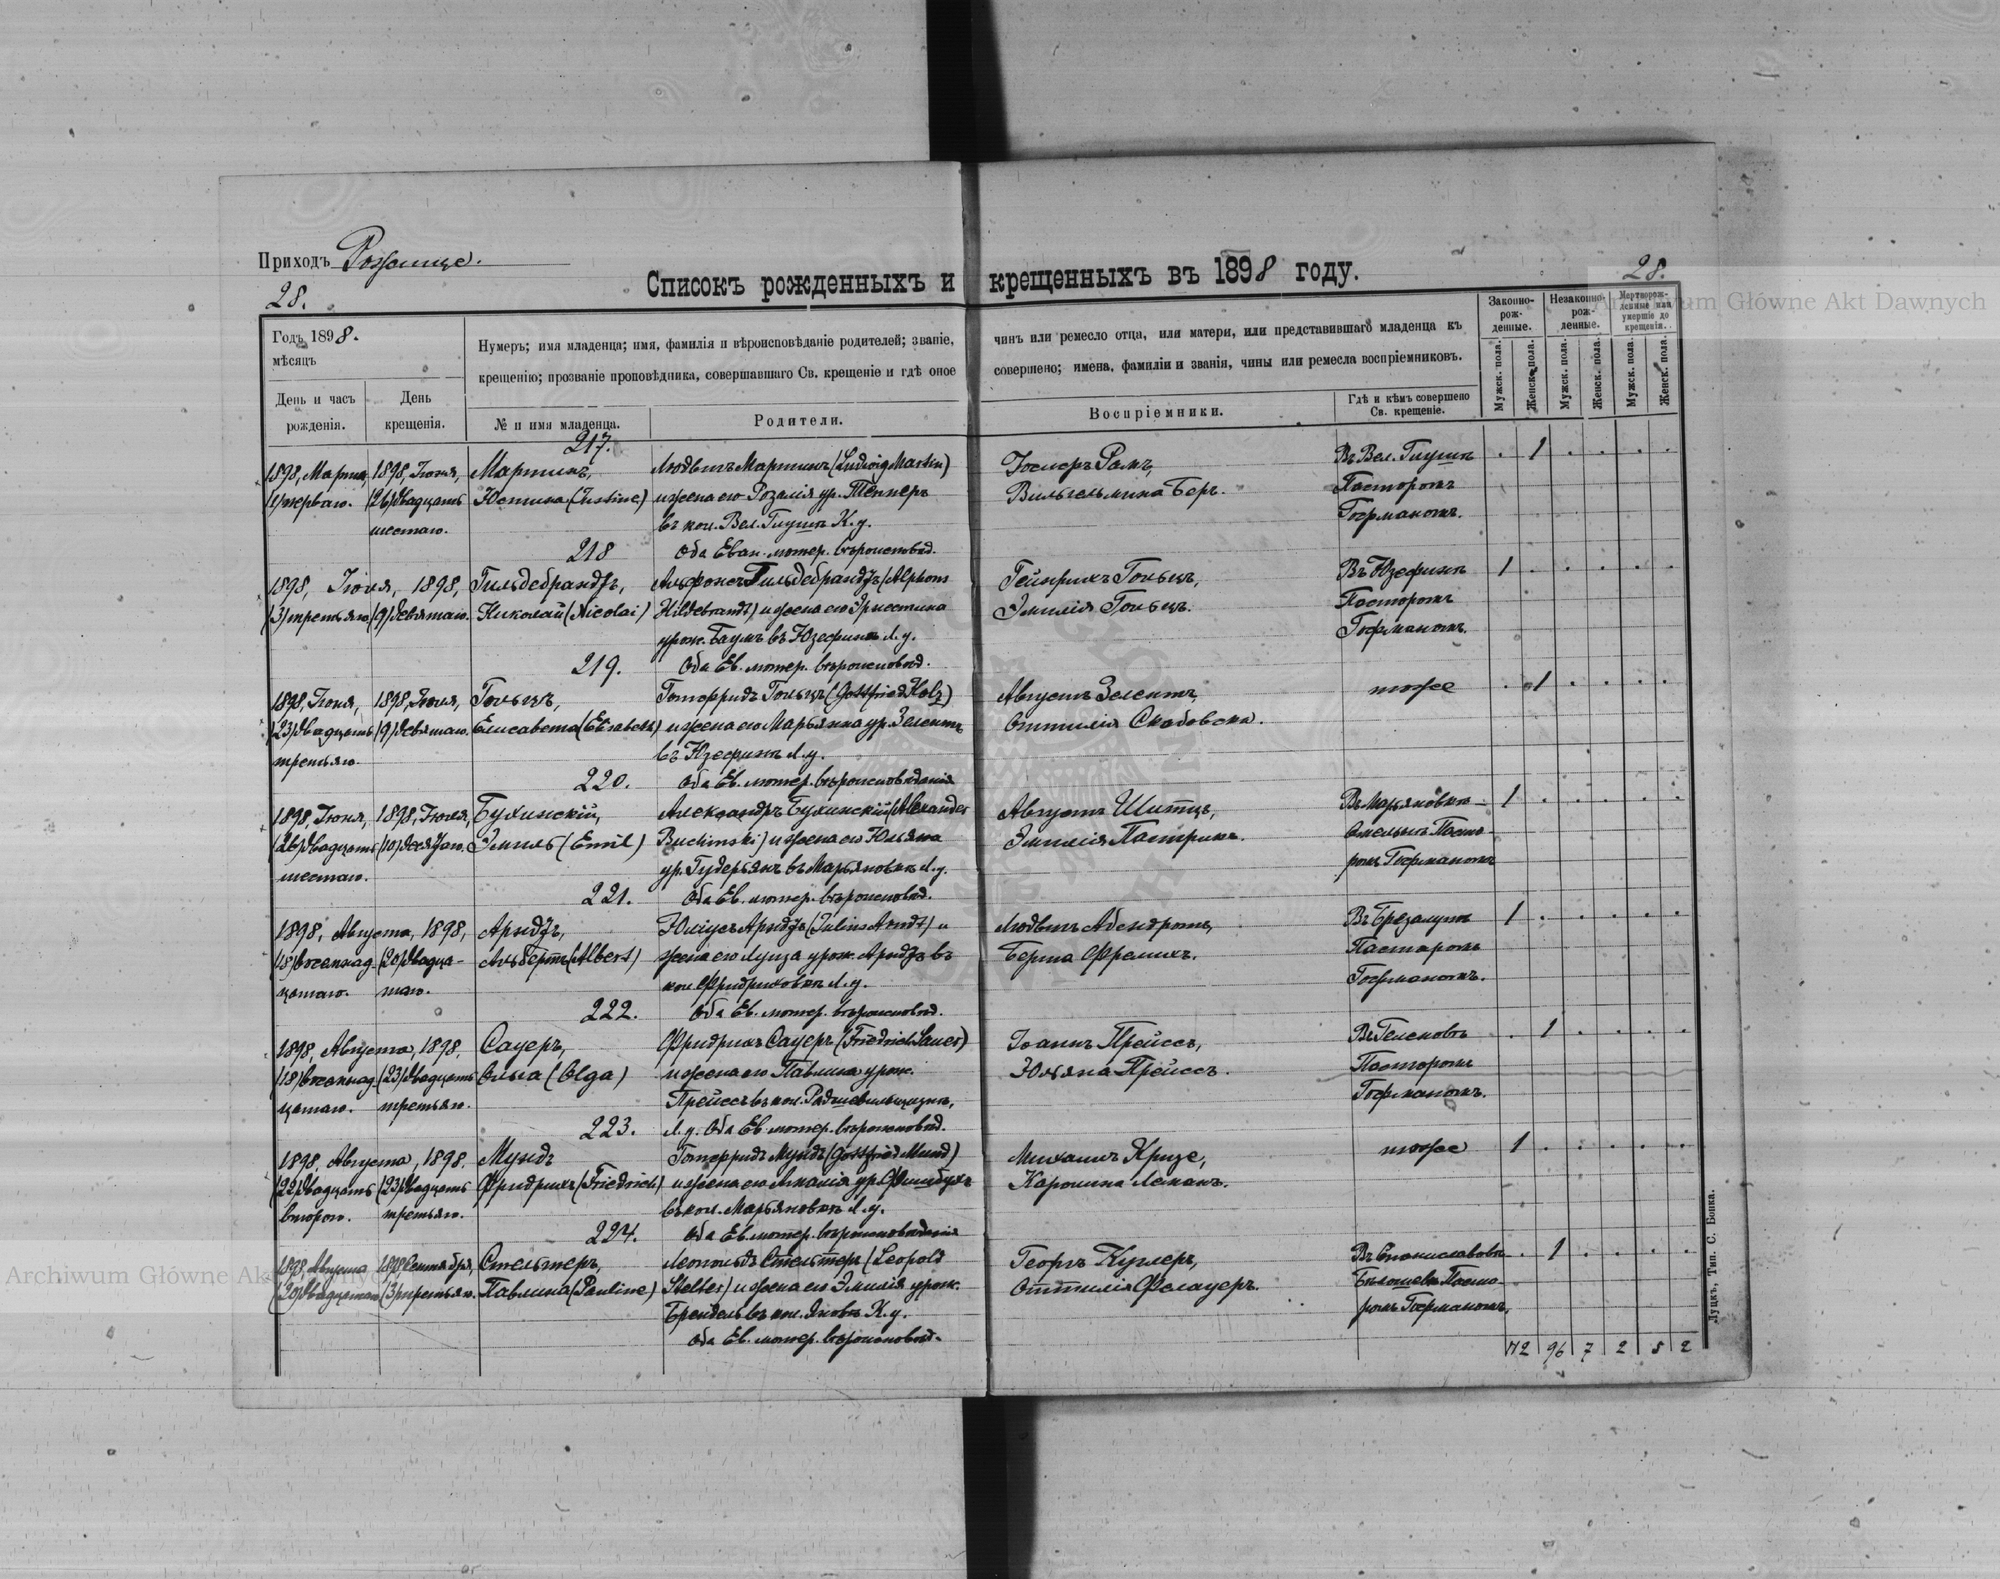 Приходъ Рожище.
28.
28.
Списокъ рожденныхъ и крещенныхъ въ 1898 году.
Годъ 1898.
мѣсяцъ
День и часъ рожденія.
День крещенія.
Нумеръ; имя младенца; имя, фамилія и вѣроисповѣданіе родителей; званіе, чинъ или ремесло отца, или матери, или представившаго младенца къ
крещенію; прозваніе проповѣдника, совершавшаго Св. крещеніе и гдѣ оное совершено; имена, фамиліи и званія, чины или ремесла воспріемниковъ.
№ и имя младенца.
Родители.
Воспріемники.
Гдѣ и кѣмъ совершено Св. крещеніе.
Законно-рож-денные.
Незаконно-рож-денные.
Мертворож-денные или умершіе до крещенія.
Мужск. пола.
Женск. пола.
Мужск. пола.
Женск. пола.
Мужск. пола.
Женск. пола.
217.
1898, Марта, 1898, Іюня, Мартинъ, Людвигъ Мартинъ (Ludwig Martin) Въ Вел. Глушѣ . 1 . . . .
(1) перваго. (26) двадцать Юстина (Justine) и жена его Розалія ур. Теннеръ Вильгельмина Беръ. Пасторомъ
шестаго. въ кол. Вел. Глушѣ К. у. Гофманомъ.
218 Оба Еван. лютер. вѣроисповѣд.
1898, Іюня, 1898, Гильдебрандъ, Альфонсъ Гильдебрандъ (Alphons Гейнрихъ Гольцъ, Въ Юзефинѣ 1 . . . . .
(3) третьяго (9) девятаго. Николай (Nicolai) Hildebrandt) и жена его Эрнестина Эмилія Гольцъ. Пасторомъ
урож. Баумъ въ Юзефинѣ Л. у. Гофманомъ.
219. Оба Ев. лютер. вѣроисповѣд.
1898, Іюня, 1898, Іюля, Гольцъ, Готфридъ Гольцъ (Gottfried Holz) Августъ Зелентъ, тоже . 1 . . . .
(23) двадцать (9) девятаго. Елисавета (Elisabeth) и жена его Марьянна ур. Зелентъ Оттилія Скабовска.
третьяго. въ Юзефинѣ Л. у.
220. Оба Ев. лютер. вѣроисповѣданія
1898, Іюня, 1898, Іюля, Бухинскій, Александръ Бухинскій (Alexander Августъ Шитцъ, Въ Марьяновкѣ 1 . . . . .
(26) двадцать (10) десятаго. Эмиль (Emil) Buchinski) и жена его Юльяна Эмилія Патрикъ. Омельникъ Пасто-
шестаго. ур. Гудерьянъ въ Марьяновкѣ Л. у. ромъ Гофманомъ
221. Оба Ев. лютер. вѣроисповѣд.
1898, Августа, 1898, Арндтъ, Юліусъ Арндтъ (Julius Arndt) и Людвигъ Абендротъ, Въ Брезалупѣ 1 . . . . .
(18) восемнад- (20) двадца- Альбертъ (Albert) жена его Луиза урож. Арндтъ въ Берта Фрелихъ. Пасторомъ
цатаго. таго. кол. Фридриховкѣ Л. у. Гофманомъ.
222. Оба Ев. лютер. вѣроисповѣд.
1898, Августа, 1898, Сауеръ, Фридрихъ Сауеръ (Friedrich Sauer) Іоаннъ Прейссъ, . 1 . . . .
(18) восемнад- (23) двадцать Ольга (Olga) и жена его Павлина урож. Юльяна Прейссъ. Пасторомъ
цатаго. третьяго. Прейссъ въ кол. Гофманомъ.
223. Л. у. Оба Ев. лютер. вѣроисповѣд.
1898, Августа, 1898, Мундъ Готфридъ Мундъ (Gottfried Mund) Михаилъ Крузе, тоже 1 . . . . .
(22) двадцать (23) двадцать Фридрихъ (Friedrich) и жена его Амалія ур. Каролина Леманъ.
второго. третьяго. въ кол. Марьяновкѣ Л. у.
224. Оба Ев. лютер. вѣроисповѣданія
1898, Августа 1898, Сентября, Стельтеръ, Леопольдъ Стельтеръ (Leopold Георгъ Куглеръ, Въ Станиславовкѣ . 1 . . . .
(20) двадцатаго (3) третьяго. Павлина (Pauline) Stelter) и жена его Эмилія урож. Оттилія Фелауеръ. Пасто-
Брендель въ кол. Яновкѣ К. у. ромъ Гофманомъ,
Оба Ев. лютер. вѣроисповѣд.
72 96 7 2 5 2
Луцкъ. Тип. С. Бонка.
Archiwum Główne Akt Dawnych
Archiwum Główne Akt Dawnych